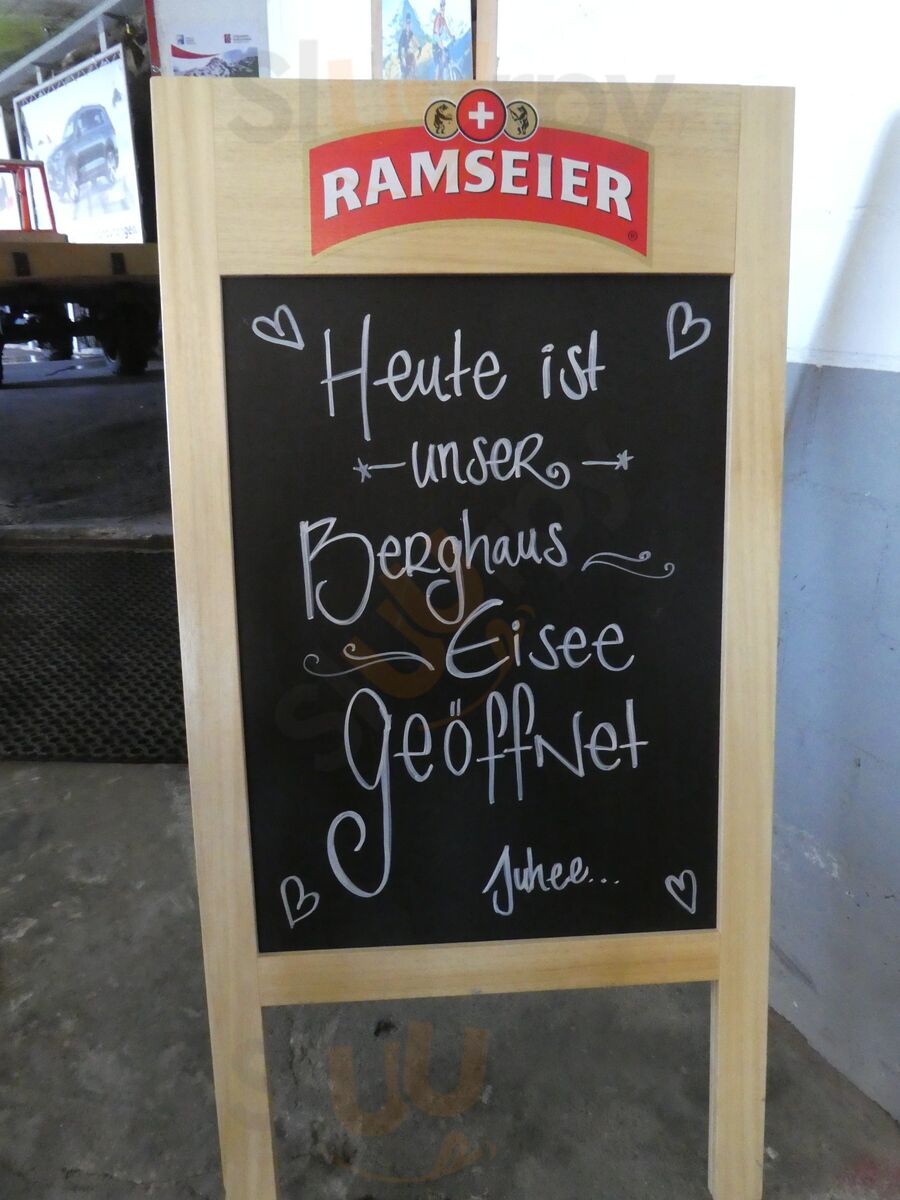 Sluurpy
RAMSEIER
®
Heute ist
unser
Berghaus
Eisee
geöffnet
Juhee...